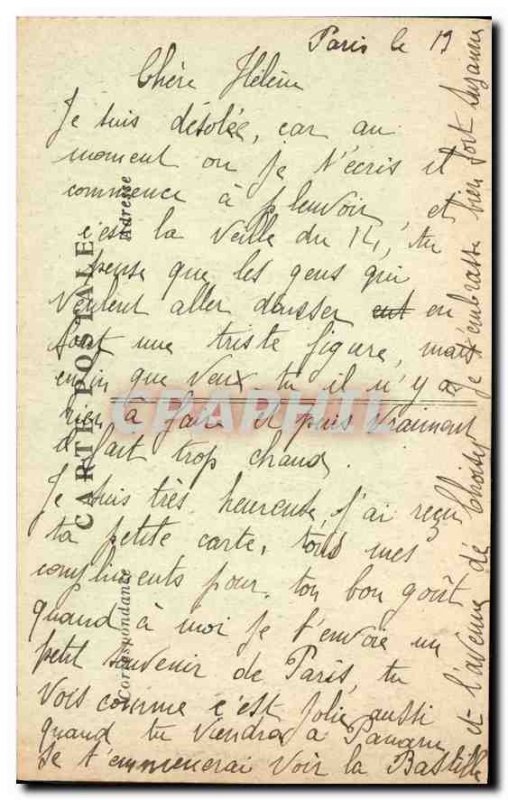 Paris le 19
Chère Hélène
Je suis désolée, car au
moment ou je t'écris il
commence à pleuvoir, et
c'est la veille du 14, tu
pense que les gens qui
veulent aller dansser en
font une triste figure, mais
enfin que veux tu il n'y a
rien à faire il puis vraiment
fait trop chaud.
Je suis très heureuse, j'ai reçu
ta petite carte, tous mes
compliments pour ton bon goût
quand à moi je t'envoie un
petit souvenir de Paris, tu
vois comme c'est jolie, aussi
quand tu viendra à Paname
je t'emmenerai voir la Bastille
et l'avenue de Choisy je t'embrasse bien fort Suzanne
CARTE POSTALE
Correspondance
Adresse
CRAPHIL